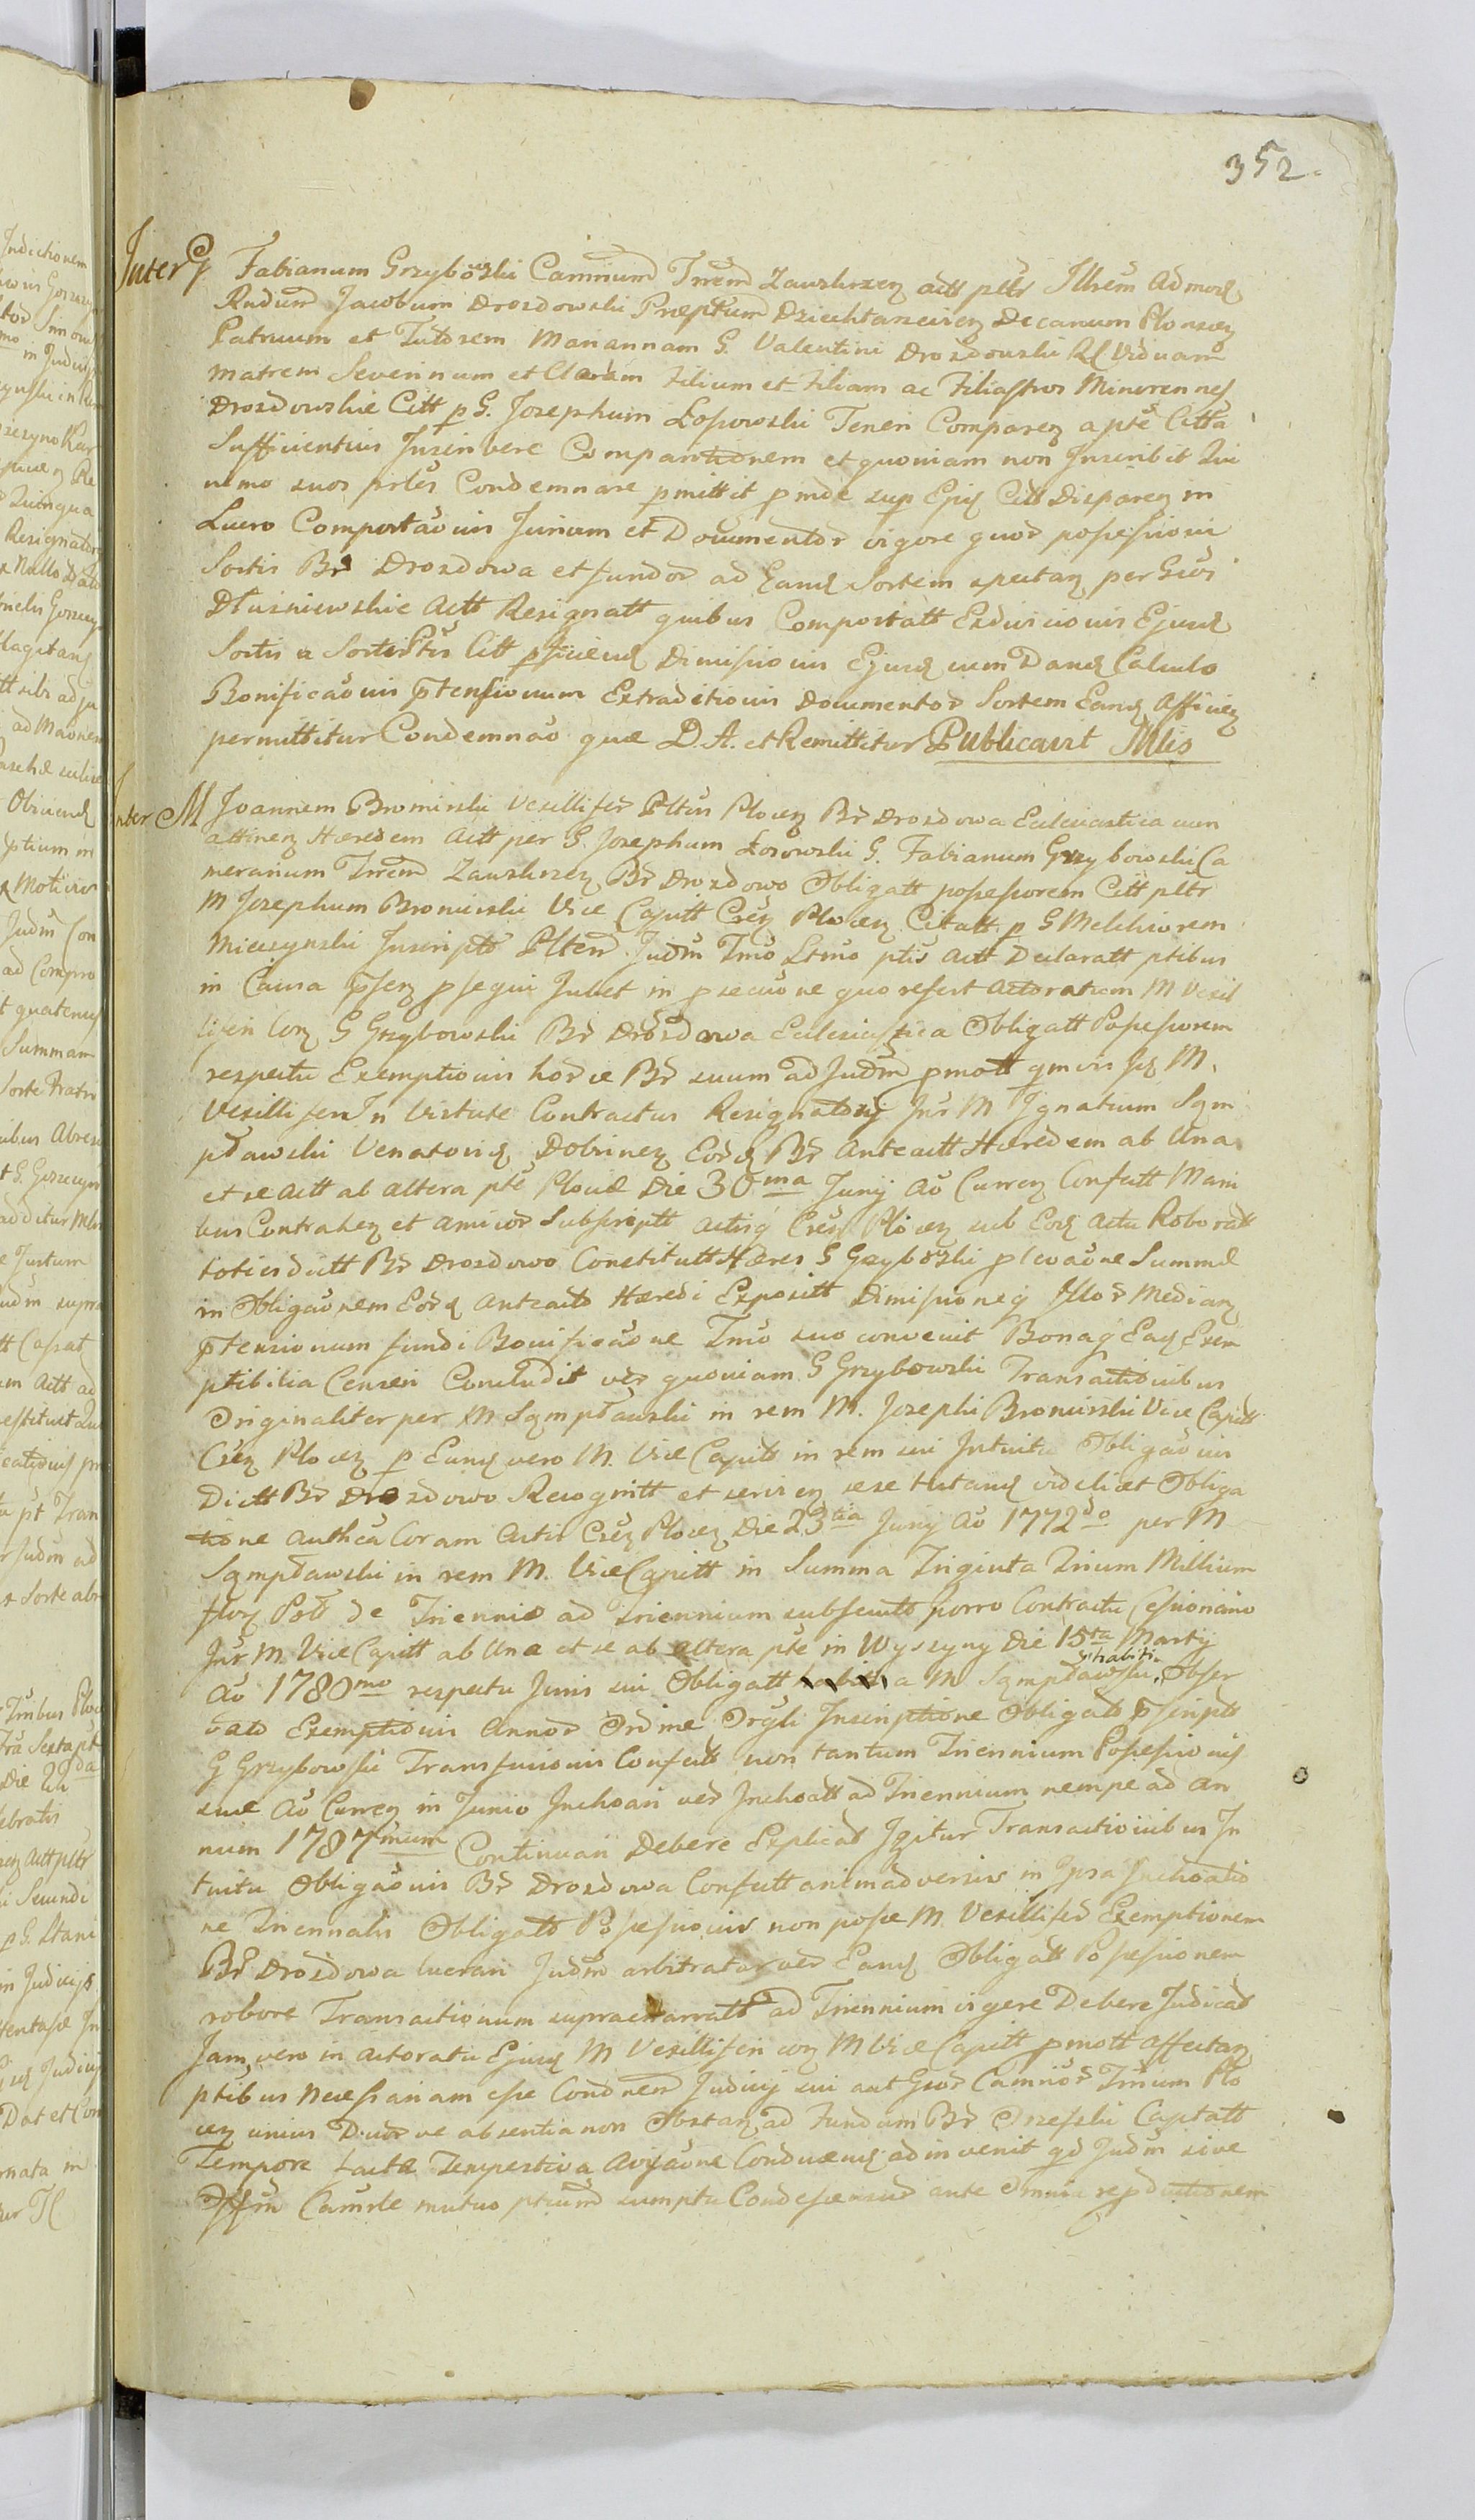 352.
Inter G Fabianum Grzybowski Camrium Trrem Zawskrzen actt pltr Illrem Admod
Rndum Jacobum Drozdowski Praeptum Dziechtarzevien Decanum Plonscen
Patruum et Tutorem Mariannam G. Valentini Drozdowski Rl Viduam
matrem Severinum et Claram Filium et Filiam ac Filiastros Minorennes
Drozdowskie Citt p G. Josephum Łosowski Teneri Comparen a pte Citta
Sufficientius Inscribere Comparitionem et quoniam non Inscribit Qui
nimo suos prles Condemnare pmittit pinde sup Ejus Citt Disparen in
Lucro Comportaois Jurium et Documentor vigore quor possessionis
Sortis Br Drozdowa et fundor ad Eand Sortem spectan per Gsos
Dłuzniewskie Actt Resignatt quibus Comportatt Exdivisionis Ejusd
Sortis a Sorte Ptis Citt pficiend Dimissionis Ejusd cum Dand Calculo
Bonificaois ptensionum Extraditionis Documentor Sortem Eand Afficien
permittitur Condemnao quae D. A. et Remittitur Publicavit Mlis
Inter M Joannem Bromirski Vexillifer Pltus Plocen Br Drozdowa Eclesiastica cum
attinen Haeredem Actt per G. Josephum Łosowski G. Fabianum Grzybowski Ca
merarium Trrem Zawskrzen Br Drozdowo Obligatt possessorem Citt pltr
M Josephum Bromirski Vice Capitt Csen Plocen Citatt p G Melchiorem
Miecszynski Inscripto Plten Judm Tmo Ltmo ptis Actt Declaratt ptibus
in Causa psen psequi Jubet in psecuone quo refert Actoratum M Vexil
liferi Con G Grzybowski Br Drozdowa Eclesiastica Obligatt Possessorem
respectu Exemptionis horce Br suum ad Judm pmott qmvis Js M.
Vexilliferi In Virtute Contractus Resignatorij Inr M Ignatium Sqm
pławski Venatorid Dobrinen Eord Br Anteactt Haeredem ab Una
et se Actt ab altera pte Plociae Die 30ma Junij Ao Curren Confectt Mani
bus Contrahen et amicor Subscriptt actisq Csen Plocen sub Eod Actu Roboratt
toties dictt Br Drozdowo Constitutt Haeres G Grzybowski p levaone Summae
in Obligaonem Eord Anteacto Haeredi Exposit Dimissioneq Illor Median
ptensionum fundi Bonificaone Tmo suo convenit Bonaq Ead Exem
ptibilia Censeri Concludit ver quoniam G Grzybowski Transactionibus
Originaliter per M Sqmpławski in rem M. Josephi Bromirski Vice Capitt
Csen Plocen p Eund vero M. Vice Capitt in rem sui Intuitu Obligaonis
Dictt Br Drozdowo Recognitt et servien sese tutand videlicet Obliga
tione Authca Coram Actis Csen Plocen Die 23tia Junij Ao 1772do per M
Sqmpławski in rem M. Vice Capitt in Summa Triginta Trium Millium
flor Poll de Triennio ad Triennium subsecuto porro Contractu Cessionario
Inr M Vice Capitt ab Una et se ab altera pte in Wyszyny Die 15ta Martij
Ao 1780mo respectu Juris sui Obligatt a M Sqmpławski habiti Obser
vato Exemptionis Annor Ordine Orgli Inscriptione Obligato pscripto
G Grzybowski Transfusionis Confecto non tantum Triennium Possessionis
suae Ao Curren in Junio Inchoari ver Inchoatt ad Triennium nempe ad an
num 1787mum Continuari Debere Explicat Igitur Transactionibus In
tuitu Obligaonis Br Drozdowa Confectt animadversis in Ipsa Inchoatio
ne Triennalis Obligato Possessionis non posse M. Vexillifer Exemptionem
Br Drozdowa lucrari Judm arbitratur ver Eand Obligatt Possessionem
robore Transactionum supraenarratt ad Triennium vigere Debere Judicat
Jam vero in Actoratu Ejusd M Vexilliferi con M Vice Capitt pmott affectan
ptibus Necessariam esse Condnem Judicij sui aut Gsor Camrior Trium Plo
cen unius Duor ve absentia non Obstan ad Fundum Br Orzesski Captatt
Tempore facta Tempestiva Avisaone Conducend adinvenit qd Judm sive
Offm Camrle mutuo ptium sumptu Condescensur ante Omnia repductionem